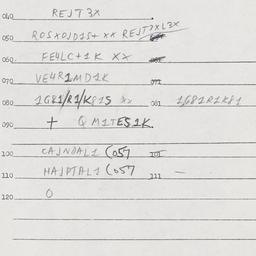 040 REJT3X
050 ROSXOJDIS+ XX REJTXL3X
060 FE4LC+1K XX
070 VE4R1MD1K 072
080 1G81/R1/K81S XX 081 1G81R1K81
090 + QM1TES1K
100 CAJNDAL1 (057 101
110 HAJPTAL1 (057 111 —
120 O